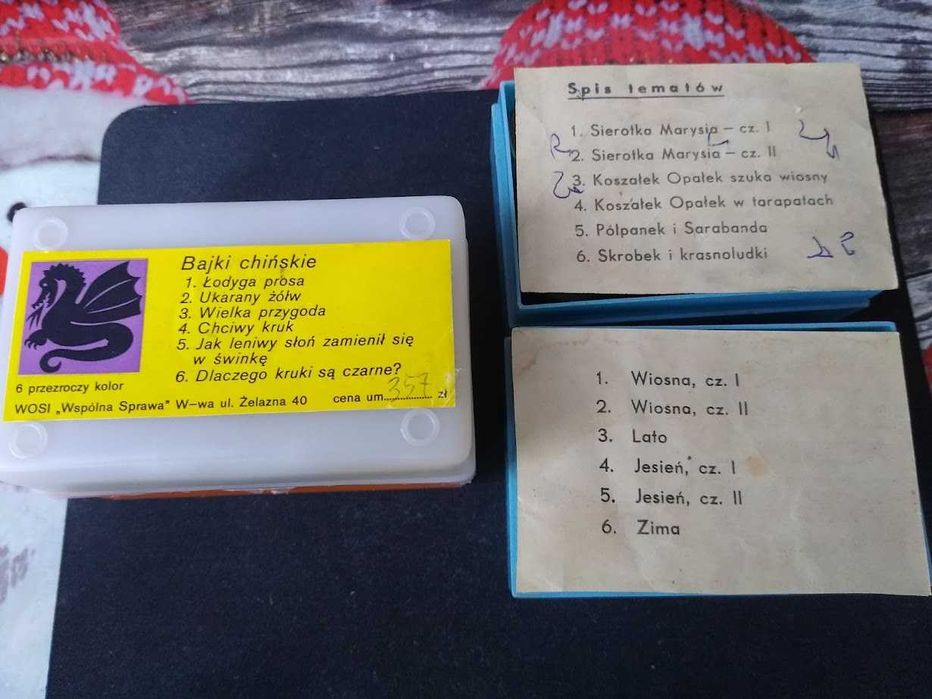 Bajki chińskie
1. Łodyga prosa
2. Ukarany żółw
3. Wielka przygoda
4. Chciwy kruk
5. Jak leniwy słoń zamienił się
w świnkę
6. Dlaczego kruki są czarne?
6 przezroczy kolor
WOSI „Wspólna Sprawa" W-wa ul. Żelazna 40 cena um. 357 zł
Spis tematów
1. Sierotka Marysia – cz. I
2. Sierotka Marysia – cz. II
3. Koszałek Opałek szuka wiosny
4. Koszałek Opałek w tarapatach
5. Półpanek i Sarabanda
6. Skrobek i krasnoludki
1. Wiosna, cz. I
2. Wiosna, cz. II
3. Lato
4. Jesień, cz. I
5. Jesień, cz. II
6. Zima